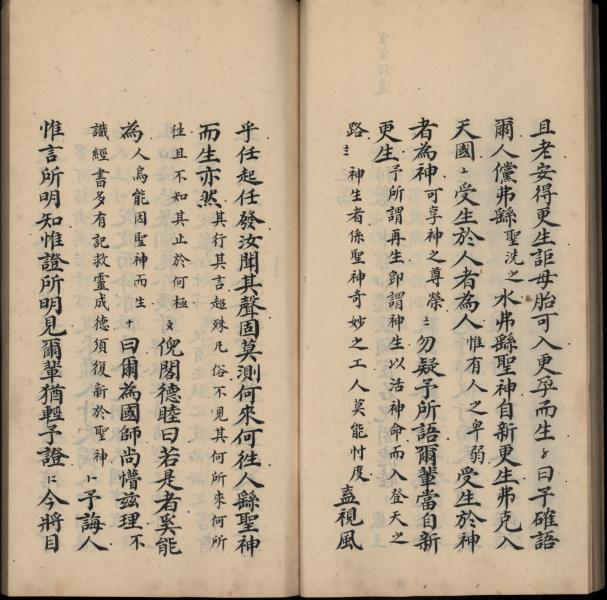 且老安得更生詎母胎可入更孕而生〥曰予確語
爾人儻弗繇聖洗之水弗繇聖神自新更生弗克入
天國〦受生於人者為人惟有人之卑弱受生於神
者為神可享神之尊榮〧勿疑予所語爾輩當自新
更生予所謂再生卽謂神生以活神命而入登天之
路〨神生者係聖神奇妙之工人莫能忖度盍視風
乎任起任發汝聞其聲固莫測何來何徃人繇聖神
而生亦然其行其言超殊凡俗不見其何所來何所
徃且不知其止於何極〩倪閣德睦曰若是者奚能
為人烏能因聖神而生十曰爾為國師尚懵茲理不
識經書多有記救靈成德須復新於聖神予誨人
惟言所明知惟證所明見爾輩猶輕予證今將目